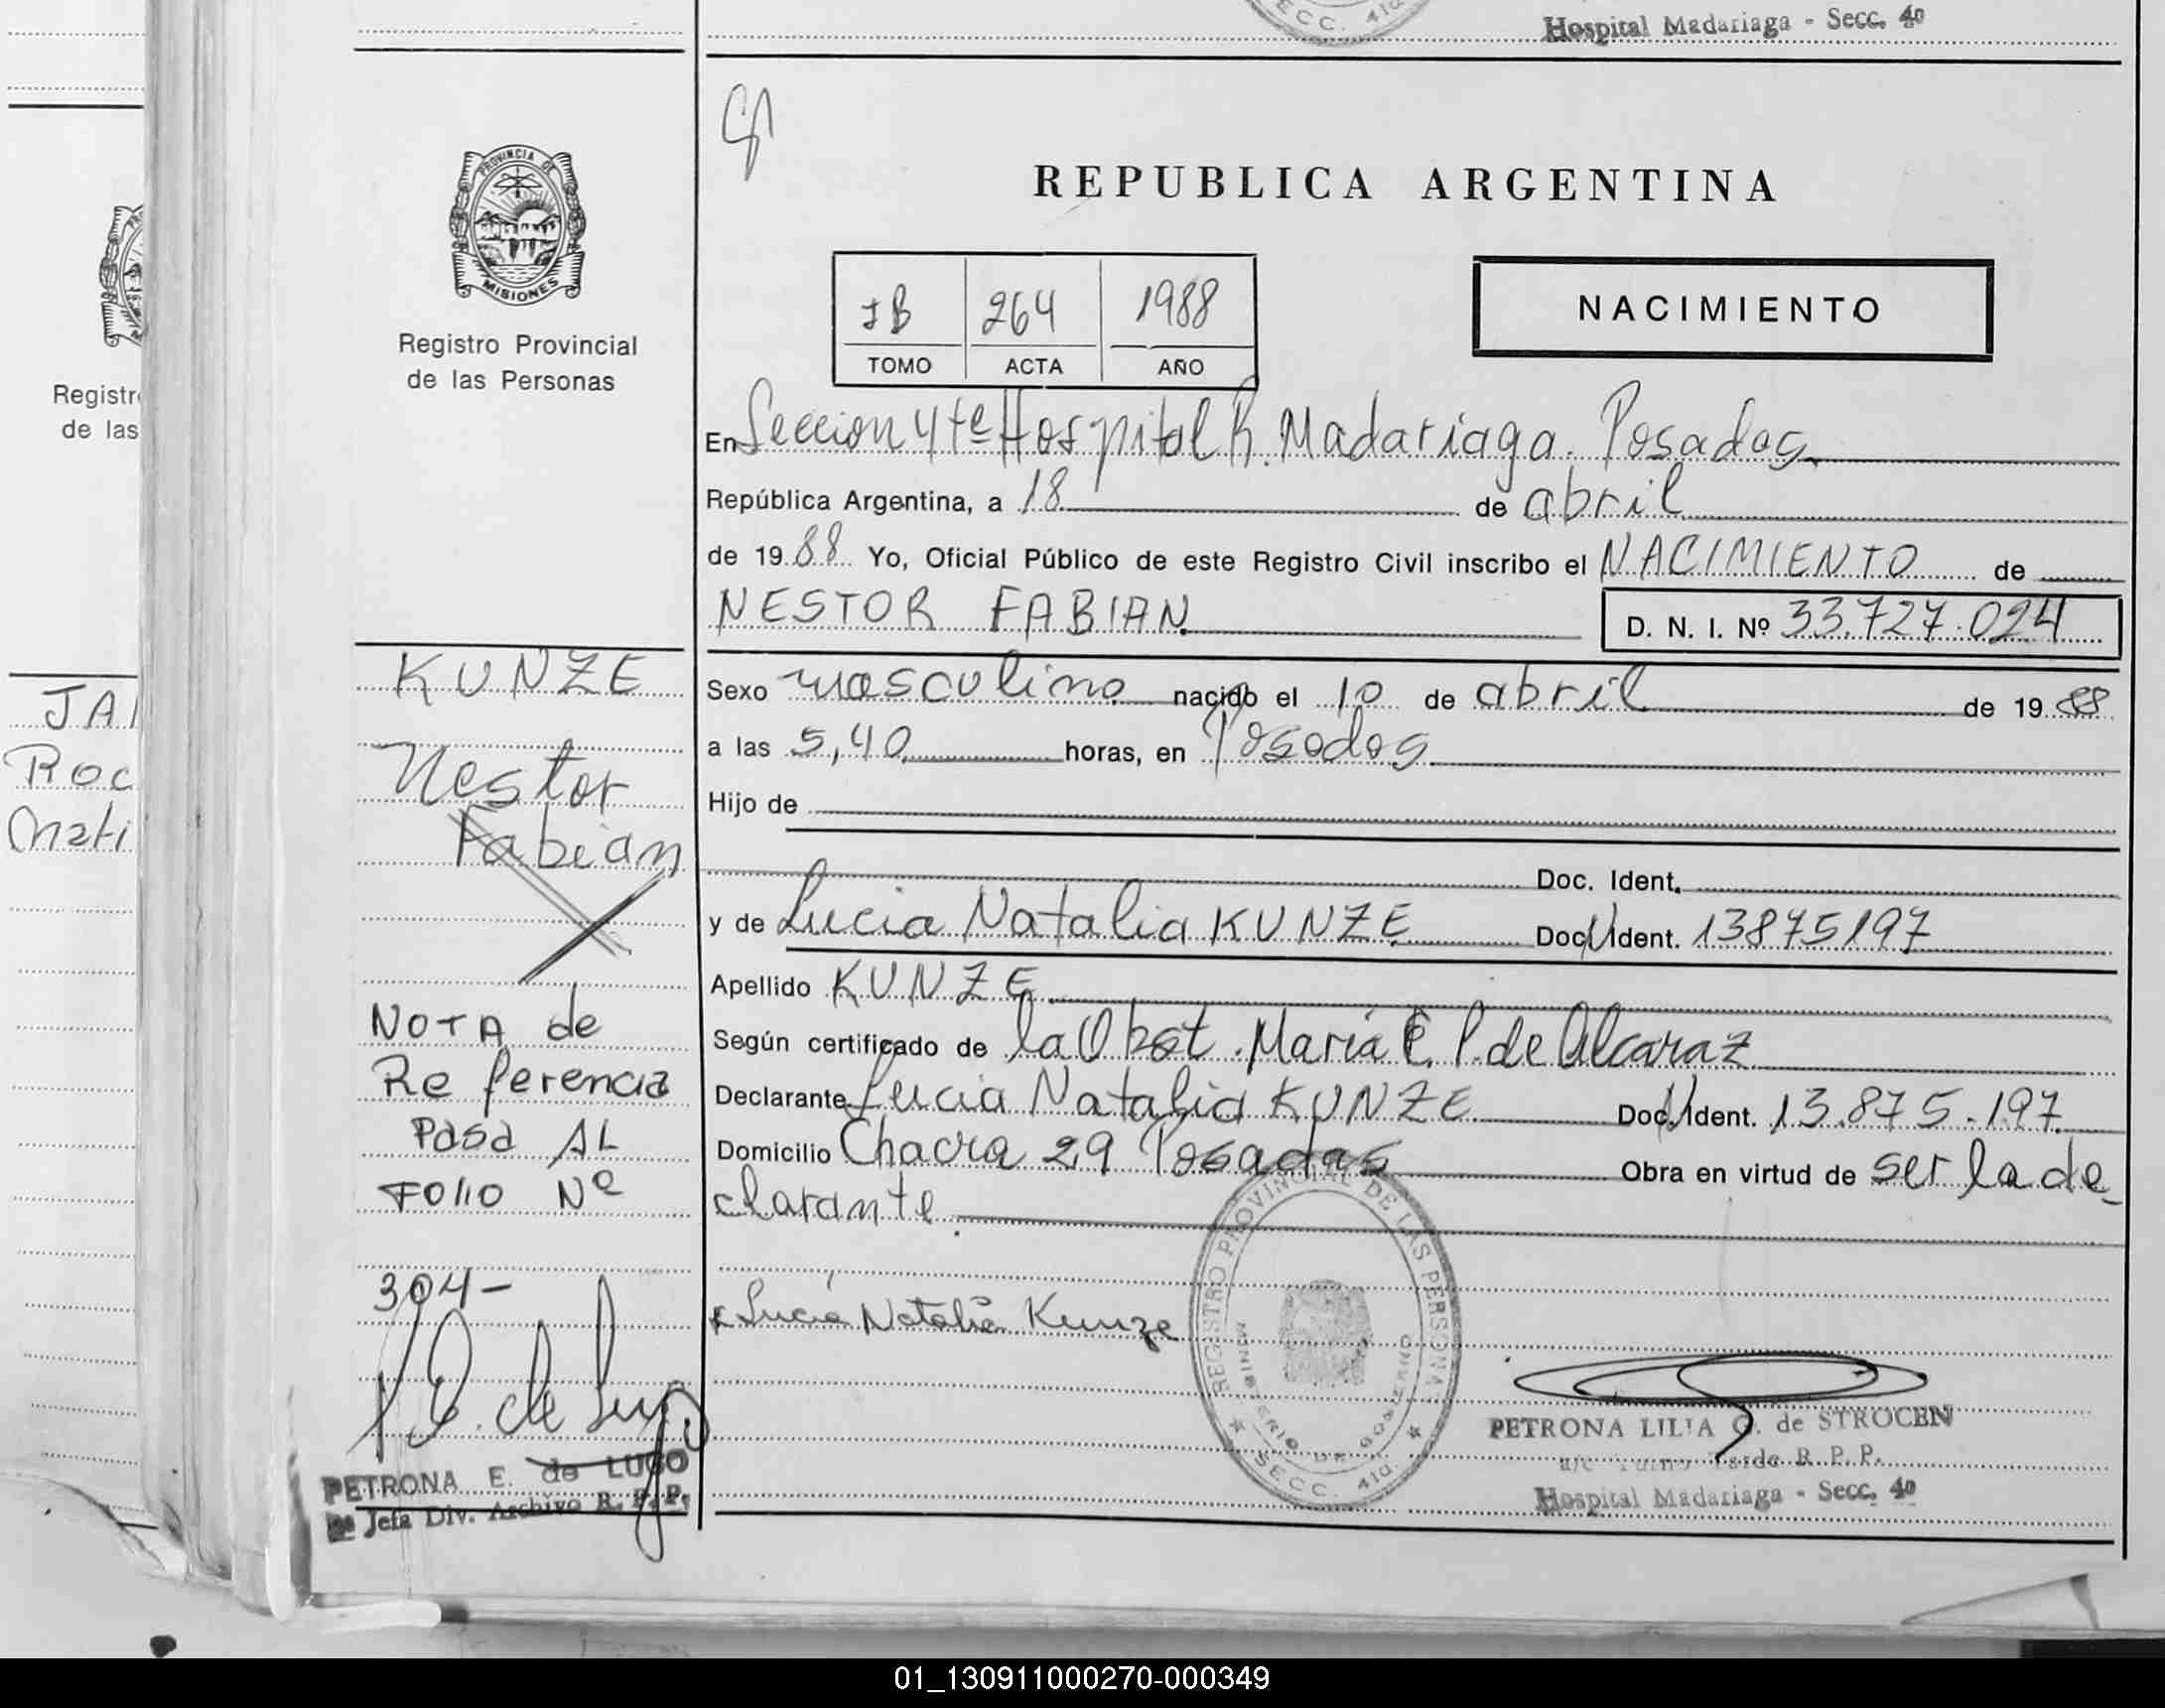 SECC. 41a.
Hospital Madariaga - Secc. 40
PROVINCIA DE
MISIONES
Registro Provincial
de las Personas
REPUBLICA ARGENTINA
264 1988
TOMO ACTA AÑO
NACIMIENTO
En Seccion 4te Hospital R. Madariaga. Posadas
República Argentina, a 18 de abril
de 1988 Yo, Oficial Público de este Registro Civil inscribo el NACIMIENTO de
NESTOR FABIAN
D. N. I. Nº 33.727.024
Sexo masculino nacido el 10 de abril de 1988
a las 5,40 horas, en Posadas
Hijo de
Doc. Ident.
y de Lucia Natalia KUNZE Doc. Ident. 13875197
Apellido KUNZE
Según certificado de la Obst. María E. P. de Alcaraz
Declarante Lucia Natalia KUNZE Doc. Ident. 13.875.197
Domicilio Chacra 29 Posadas Obra en virtud de ser la de_
clarante
Lucia Natalia Kunze
REGISTRO PROVINCIAL DE LAS PERSONAS
MINISTERIO DE GOBIERNO
SECC. 41a.
PETRONA LILIA G. de STROCEN
a/c Turno Tarde R. P. P.
Hospital Madariaga - Secc. 40
KUNZE
Nestor
Fabian
NOTA de
Referencia
Pasa AL
Folio Nº
304-
P E. de Lugo
PETRONA E. de LUGO
Jefa Div. Archivo R. P. P.
Registr
de las
JA
Roc
Mati
01_130911000270-000349